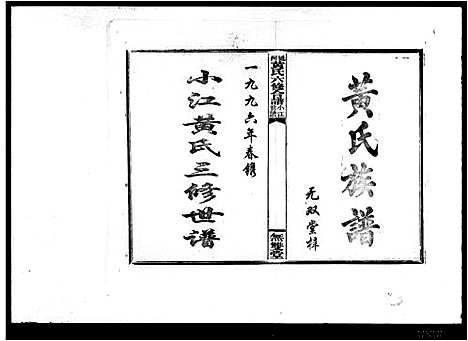 黄氏族譜
无双堂梓
黄氏六修合譜小江
無雙堂
一九九六年春鐫
小江黄氏三修世谱